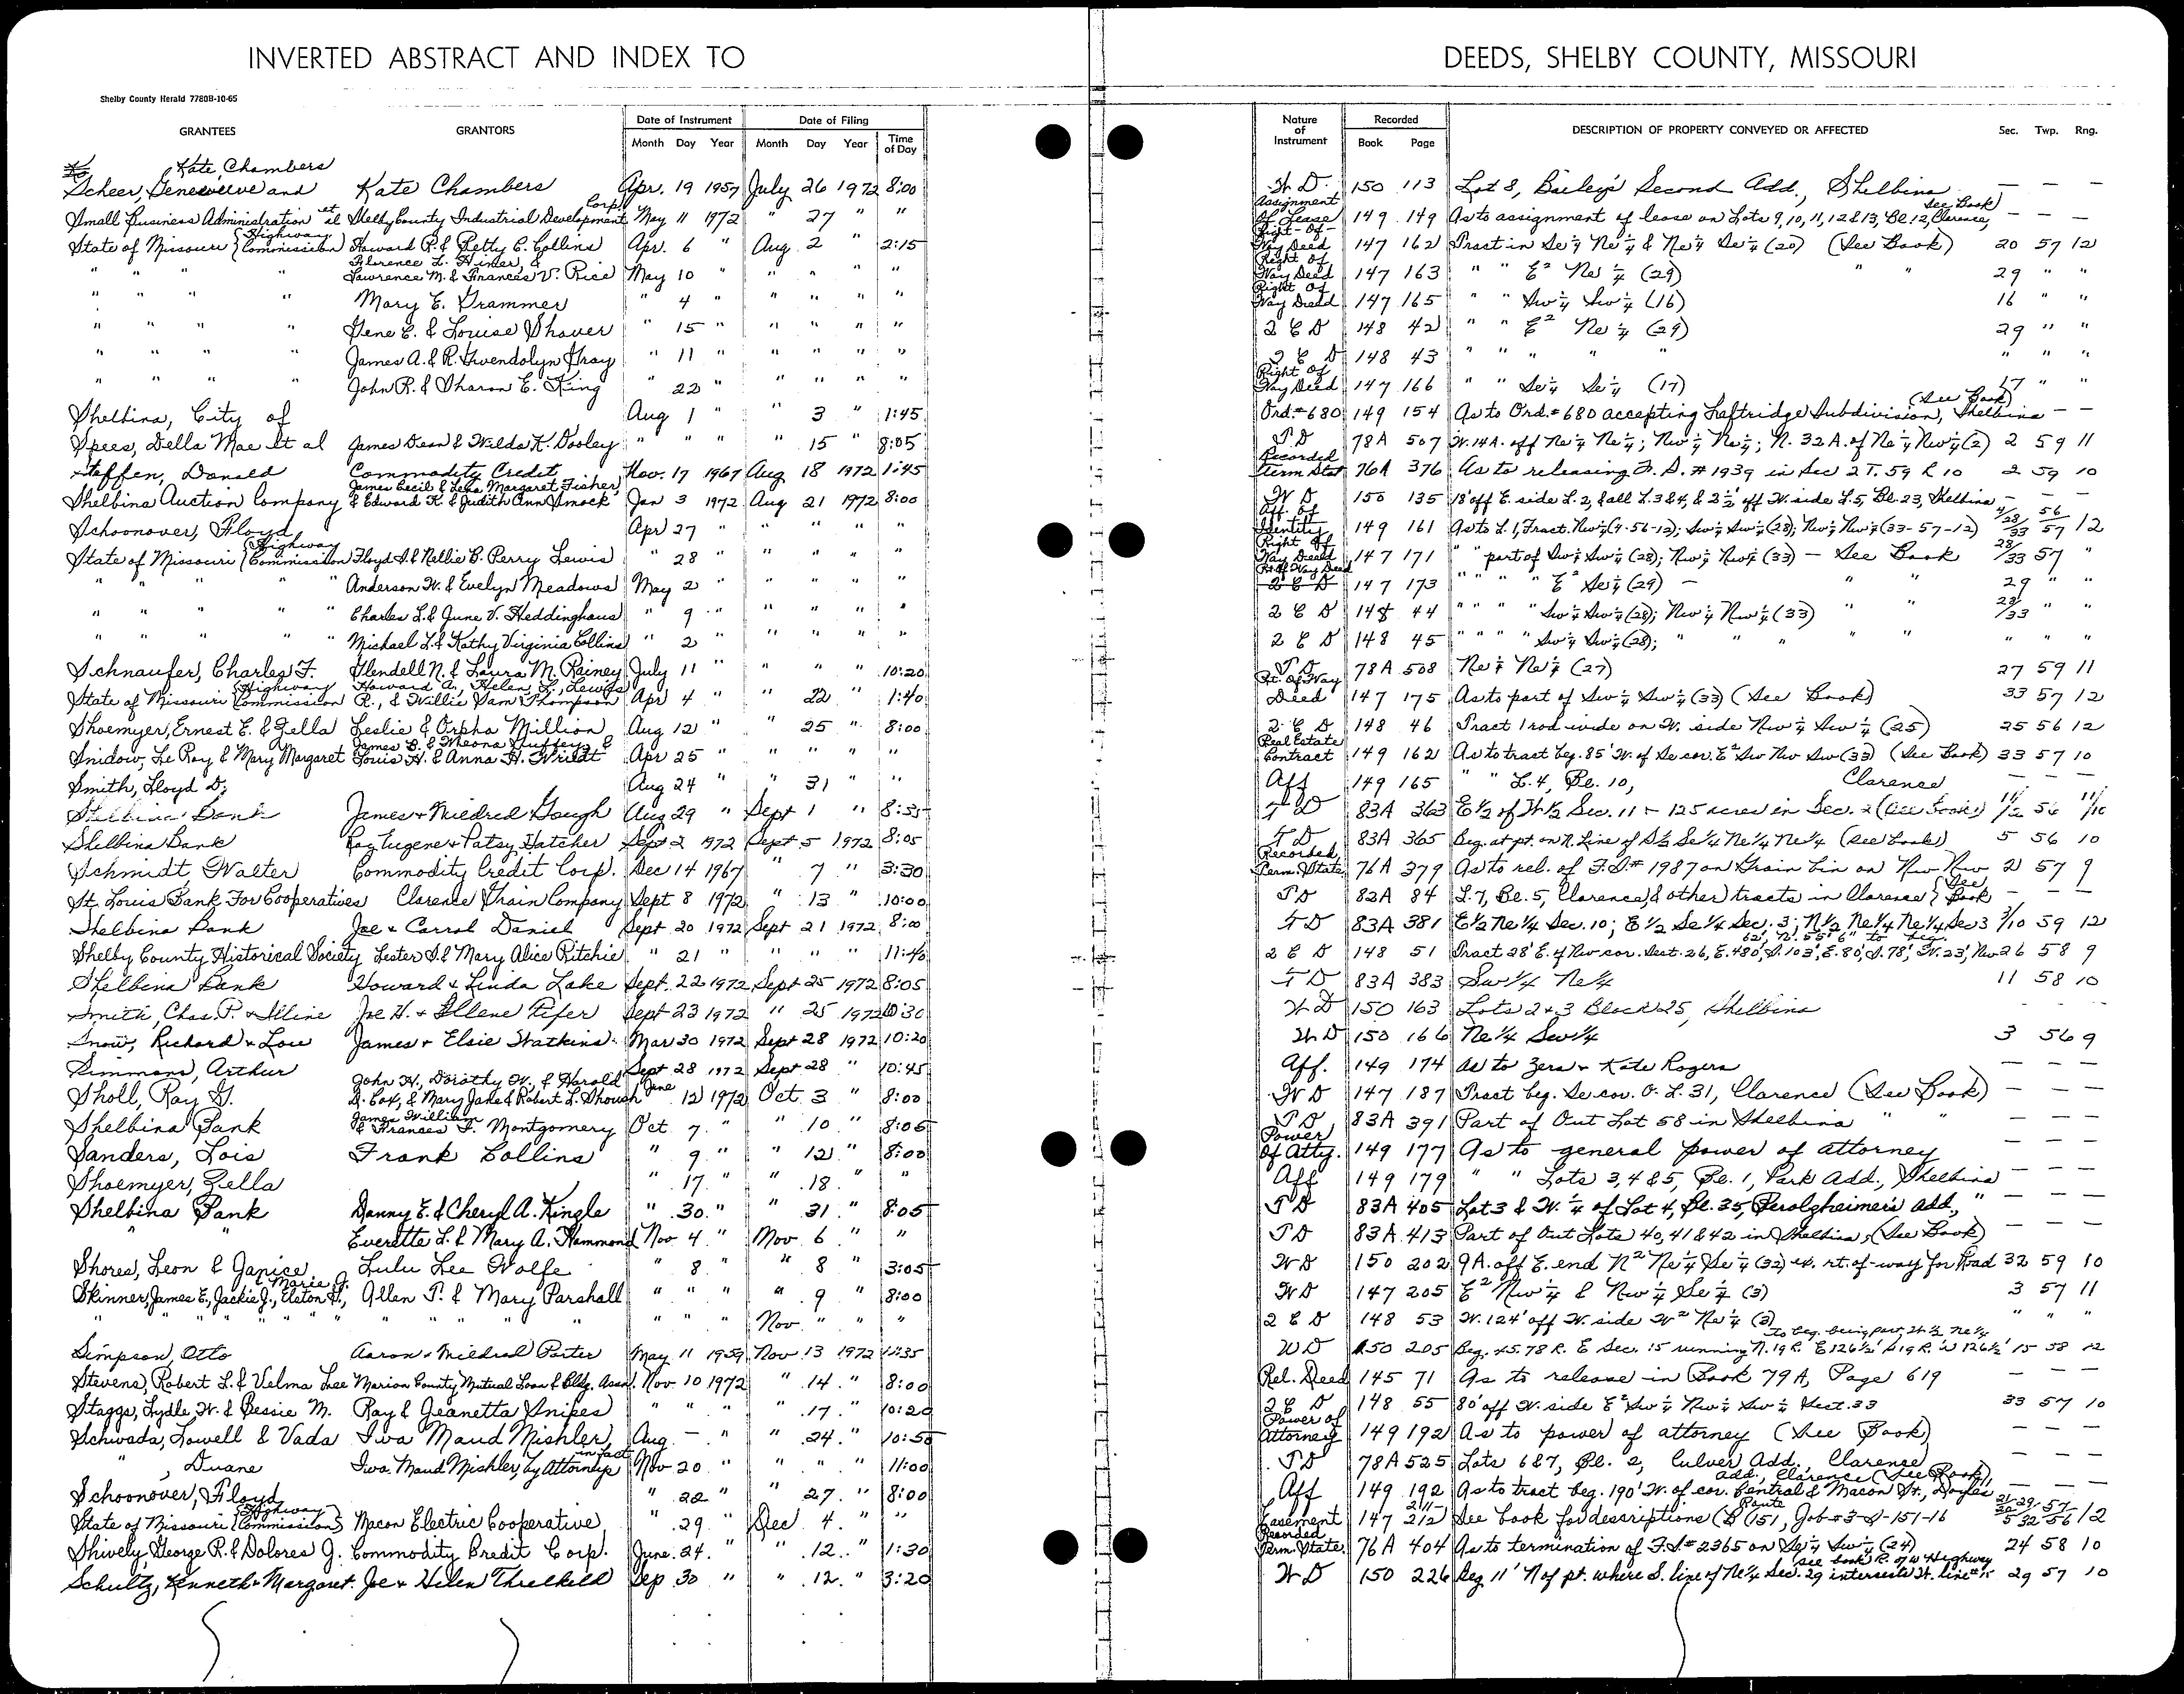 INVERTED ABSTRACT AND INDEX TO
DEEDS, SHELBY COUNTY, MISSOURI
Shelby County Herald 7780B-10-65
GRANTEES GRANTORS Date of Instrument Date of Filing Nature of Instrument Recorded DESCRIPTION OF PROPERTY CONVEYED OR AFFECTED Sec. Twp. Rng.
Month Day Year Month Day Year Time of Day Book Page
Kate Chambers
Scheer, Genevieve and Kate Chambers Apr. 19 1957 July 26 1972 8:00 W D. 150 113 Lot 8, Bailey's Second Add., Shelbina — — —
Small Business Administration et al Shelby County Industrial Development Corp. May 11 1972 " 27 " " Assignment Of Lease 149 149 As to assignment of lease on Lots 9, 10, 11, 12 & 13, Bl. 12, Clarence, See Book — — —
State of Missouri (Highway Commission) Howard P. & Betty C. Collins Apr. 6 " Aug 2 " 2:15 Right-Of-Way Deed 147 162 Tract in Se ¼ Ne ¼ & Ne ¼ Se ¼ (20) (See Book) 20 57 12
" " " " Florence L. Hiner, & Lawrence M. & Frances V. Rice May 10 " " " " " Right of Way Deed 147 163 " " E² Ne ¼ (29) " " 29 " "
" " " Mary E. Grammer " 4 " " " " " Right Of Way Deed 147 165 " " Sw ¼ Sw ¼ (16) 16 " "
" " " " Gene E. & Louise Shaver " 15 " " " " " 2 C D 148 42 " " E² Ne ¼ (29) 29 " "
" " " " James A. & R. Gwendolyn Gray " 11 " " " " " 2 C D 148 43 " " " " " " " "
" " " " John R. & Sharon E. King " 22 " " " " " Right Of Way Deed 147 166 " " Se ¼ Se ¼ (17) 17 " "
Shelbina, City of Aug 1 " " 3 " 1:45 Ord. #680 149 154 As to Ord. #680 accepting Laftridge Subdivision, Shelbina (See Book) — —
Spees, Della Mae et al James Dean & Wilda K. Dooley " " " " 15 " 8:05 T D 78A 507 W. 14A. off Ne ¼ Ne ¼; Nw ¼ Ne ¼; N. 32 A. of Ne ¼ Nw ¼ (2) 2 59 11
Steffen, Donald Commodity Credit Nov. 17 1967 Aug 18 1972 1:45 Recorded Term Stat 76A 376 As to releasing F. S. # 1939 in Sec 2 T. 59 R 10 2 59 10
Shelbina Auction Company James Cecil & Lena Margaret Fisher, & Edward K. & Judith Ann Smock Jan 3 1972 Aug 21 1972 8:00 W D 150 135 18' off E. side L. 2, & all L. 3 & 4, & 2½' off W. side L. 5, Bl. 23, Shelbina — — —
Schoonover, Floyd Apr 27 " " " " " Aff. Of Identity 149 161 As to L. 1, Tract. Nw ¼ (4-56-12); Sw ¼ Sw ¼ (28); Nw ¼ Nw ¼ (33-57-12) 4/28/33 56/57 12
State of Missouri (Highway Commission) Floyd S. & Nellie B. Perry Lewis " 28 " " " " " Right Of Way Deed 147 171 " " part of Sw ¼ Sw ¼ (28); Nw ¼ Nw ¼ (33) — See Book 28/33 57 "
" " " Anderson W. & Evelyn Meadows May 2 " " " " " Rt. of Way Deed 147 173 " " " " E² Se ¼ (29) — " " 29 " "
" " " " Charles L. & June V. Heddinghaus " 9 " " " " " 2 C D 148 44 " " " " Sw ¼ Sw ¼ (28); Nw ¼ Nw ¼ (33) " " 28/33 " "
" " " " Michael L. & Kathy Virginia Collins " 2 " " " " 2 C D 148 45 " " " " Sw ¼ Sw ¼ (28); " " " " " " " "
Schnaufer, Charles F. Glendell N. & Laura M. Rainey July 11 " " " " 10:20 T D 78A 508 Ne ¼ Ne ¼ (27) 27 59 11
State of Missouri (Highway Commission) Howard A., Helen L., Lewis R., & Willie Sam Thompson Apr 4 " " 22 " 1:40 Rt. Of Way Deed 147 175 As to part of Sw ¼ Sw ¼ (33) (See Book) 33 57 12
Shoemyer, Ernest E. & Zella Leslie & Orpha Million Aug 12 " " 25 " 8:00 2 C D 148 46 Tract 1 rod wide on W. side Nw ¼ Sw ¼ (25) 25 56 12
Snidow, Le Roy & Mary Margaret James B. & Theona Guffey, & Louis H. & Anna H. Wriedt Apr 25 " " " " " Real Estate Contract 149 162 As to tract beg. 85' W. of Se cor. E² Sw Nw Sw (33) (See Book) 33 57 10
Smith, Lloyd D. Aug 24 " 31 " " Aff 149 165 " " L. 4, Bl. 10, Clarence — — —
Shelbina Bank James + Mildred Gough Aug 29 " Sept 1 " 8:35 T D 83A 363 E½ of W½ Sec. 11 - 125 acres in Sec. 2 (see book) 11/2 56 11/10
Shelbina Bank Roy Eugene + Patsy Hatcher Sept 2 1972 Sept 5 1972 8:05 T D 83A 365 Beg. at pt. on N. Line of S½ Se¼ Ne¼ Ne¼ (see book) 5 56 10
Schmidt, Walter Commodity Credit Corp. Dec 14 1967 " 7 " 3:30 Recorded Term. State. 76A 379 As to rel. of F.S.# 1987 on Grain bin on Nw Nw 2 57 9
St. Louis Bank For Cooperatives Clarence Grain Company Sept 8 1972 " 13 " 10:00 T D 82A 84 L. 7, Bl. 5, Clarence, & other tracts in Clarence (See Book) — — —
Shelbina Bank Joe + Carrol Daniel Sept 20 1972 Sept 21 1972 8:00 T D 83A 381 E½ Ne¼ Sec. 10; E½ Se¼ Sec. 3; N½ Ne¼ Ne¼ Sec 3 3/10 59 12
Shelby County Historical Society Lester S. & Mary Alice Ritchie " 21 " " " " 11:40 2 C D 148 51 Tract 28' E. of Nw cor. Sect. 26, E. 480', S. 103', E. 80', S. 78', W. 23', Nw 62', N. 55' 6" to beg. 26 58 9
Shelbina Bank Howard & Linda Lake Sept. 22 1972 Sept 25 1972 8:05 T D 83A 383 Sw¼ Ne¼ 11 58 10
Smith, Chas. P. + Illine Joe H. + Illene Fifer Sept 23 1972 " 25 1972 10:30 W D 150 163 Lots 2 + 3 Block 25, Shelbina - - -
Snow, Richard + Lou James + Elsie Watkins Mar 30 1972 Sept 28 1972 10:20 W D 150 166 Ne¼ Sw¼ 3 56 9
Simmons, Arthur Sept 28 1972 Sept 28 " 10:45 Aff. 149 174 As to Zera + Kate Rogers — — —
Sholl, Ray G. John H., Dorothy W., & Harold D. Cox, & Mary Jane & Robert L. Shoush June 12 1972 Oct. 3 " 8:00 W D 147 187 Tract beg. Se cor. O. L. 31, Clarence (See Book) — — —
Shelbina Bank James William & Frances F. Montgomery Oct 7 " " 10 " 8:05 T D 83A 391 Part of Out Lot 58 in Shelbina " " — — —
Sanders, Lois Frank Collins " 9 " " 12 " 8:00 Power Of Atty. 149 177 As to general power of attorney — — —
Shoemyer, Zella " 17 " " 18 " " Aff 149 179 " " Lots 3, 4 & 5, Bl. 1, Park Add., Shelbina — — —
Shelbina Bank Danny E. & Cheryl A. Kingle " 30 " " 31 " 8:05 T D 83A 405 Lot 3 & W. ¼ of Lot 4, Bl. 35, Perolzheimer's Add., " — — —
" " Everette L. & Mary A. Hammond Nov 4 " Nov 6 " " T D 83A 413 Part of Out Lots 40, 41 & 42 in Shelbina, (See Book) — — —
Shores, Leon & Janice Lulu Lee Wolfe " 8 " " 8 " 3:05 W D 150 202 9A. off E. end N² Ne ¼ Se ¼ (32) w. rt. of-way for Road 32 59 10
Skinner, James E., Jackie J., Elston H., & Marie J. Allen P. & Mary Parshall " " " " 9 " 8:00 W D 147 205 E² Nw ¼ & Nw ¼ Se ¼ (3) 3 57 11
" " " " " " " " " " " " " " Nov " " " 2 C D 148 53 W. 124' off W. side W² Ne ¼ (3) " " "
Simpson, Otto Aaron + Mildred Porter May 11 1959 Nov 13 1972 11:35 WD 150 205 Beg. 45.78 R. E Sec. 15 running N. 19 R. E 126½' S 19 R. W 126½' to beg. being part W½ Ne¼ 15 58 12
Stevens, Robert L. & Velma Lee Marion County Mutual Loan & Bldg. Assn. Nov. 10 1972 " 14 " 8:00 Rel. Deed 145 71 As to release in Book 79A, Page 619 —
Staggs, Lydle W. & Bessie M. Ray & Jeanetta Snipes " " " " 17 " 10:20 2 C D 148 55 80' off W. side E² Sw ¼ Nw ¼ Sw ¼ Sect. 33 33 57 10
Schwada, Lowell & Vada Iva Maud Mishler Aug — " " 24 " 10:50 Power of Attorney 149 192 As to power of attorney (See Book) — — —
" , Duane Iva Maud Mishler, by Attorneys in fact Nov 20 " " " " 11:00 T D 78A 525 Lots 6 & 7, Bl. 2, Culver Add., Clarence — — —
Schoonover, Floyd " 22 " " 27 " 8:00 Aff 149 192 As to tract beg. 190' W. of cor. Central & Macon St., Doyles Add., Clarence (See Book) — — —
State of Missouri (Highway Commission) Macon Electric Cooperative " 29 " Dec 4 " " Easement 147 211-212 See book for descriptions (Route 151, Job #3-S-151-16 12
Shively, George R. & Dolores J. Commodity Credit Corp. June 24 " " 12 " 1:30 Recorded Term. State. 76A 404 As to termination of F.S# 2365 on Se ¼ Sw ¼ (24) 24 58 10
Schultz, Kenneth + Margaret Joe + Helen Threlkeld Sep 30 " " 12 " 3:20 W D 150 226 Beg 11' N of pt. where S. line of Ne¼ Sec. 29 intersects W. line (see book) R. of W Highway 29 57 10